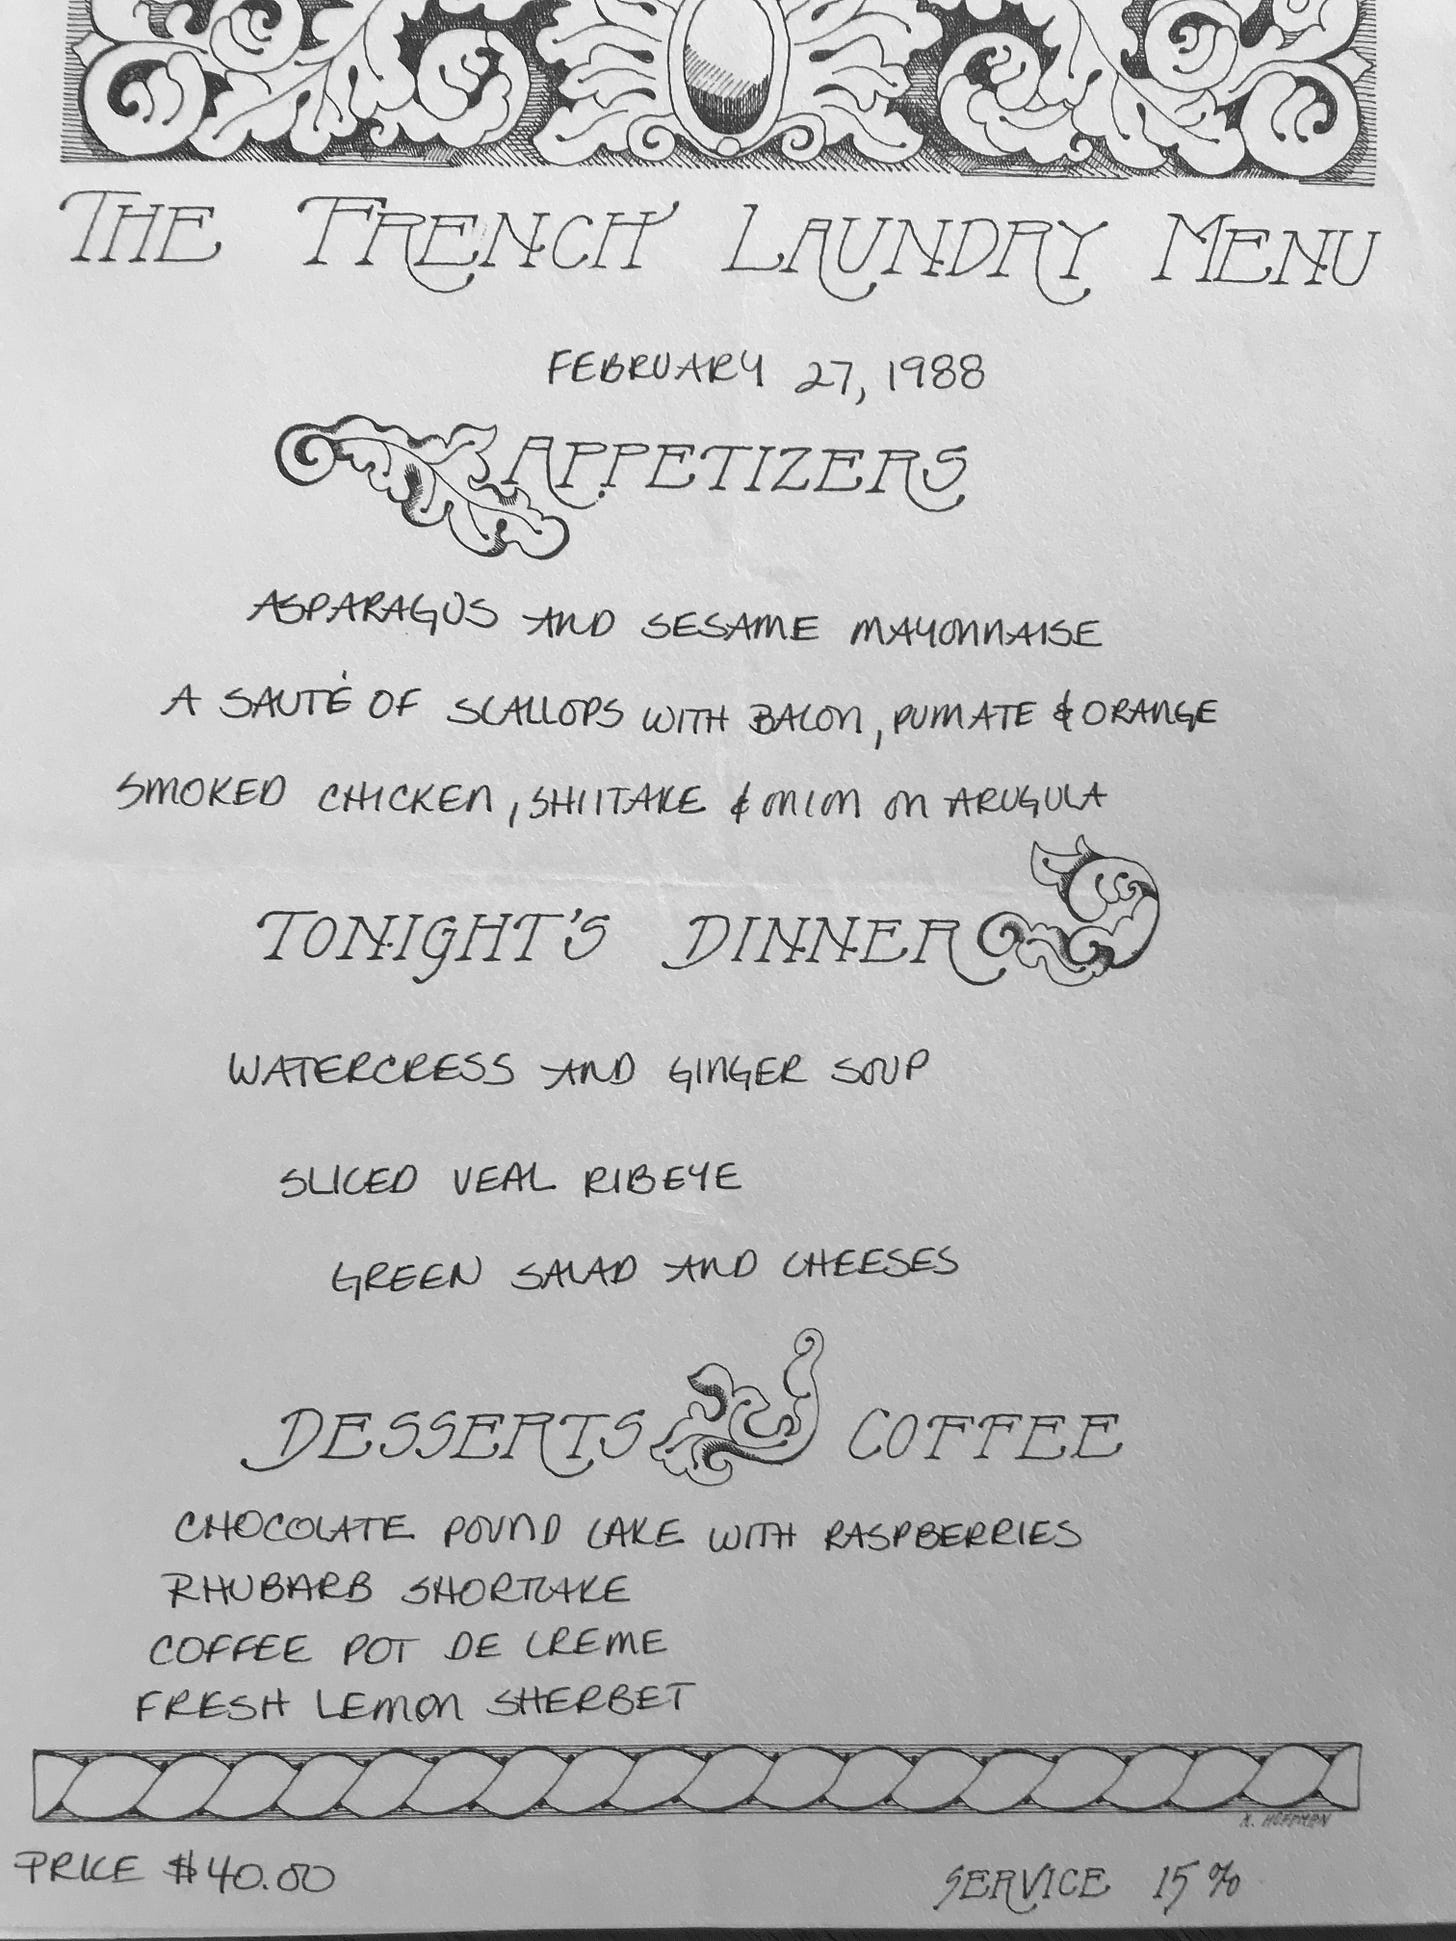 THE FRENCH LAUNDRY MENU
FEBRUARY 27, 1988
APPETIZERS
ASPARAGUS AND SESAME MAYONNAISE
A SAUTÉ OF SCALLOPS WITH BACON, PUMATE & ORANGE
SMOKED CHICKEN, SHIITAKE & ONION ON ARUGULA
TONIGHT'S DINNER
WATERCRESS AND GINGER SOUP
SLICED VEAL RIBEYE
GREEN SALAD AND CHEESES
DESSERTS COFFEE
CHOCOLATE POUND CAKE WITH RASPBERRIES
RHUBARB SHORTCAKE
COFFEE POT DE CREME
FRESH LEMON SHERBET
K. HOFFMAN
PRICE $40.00 SERVICE 15%